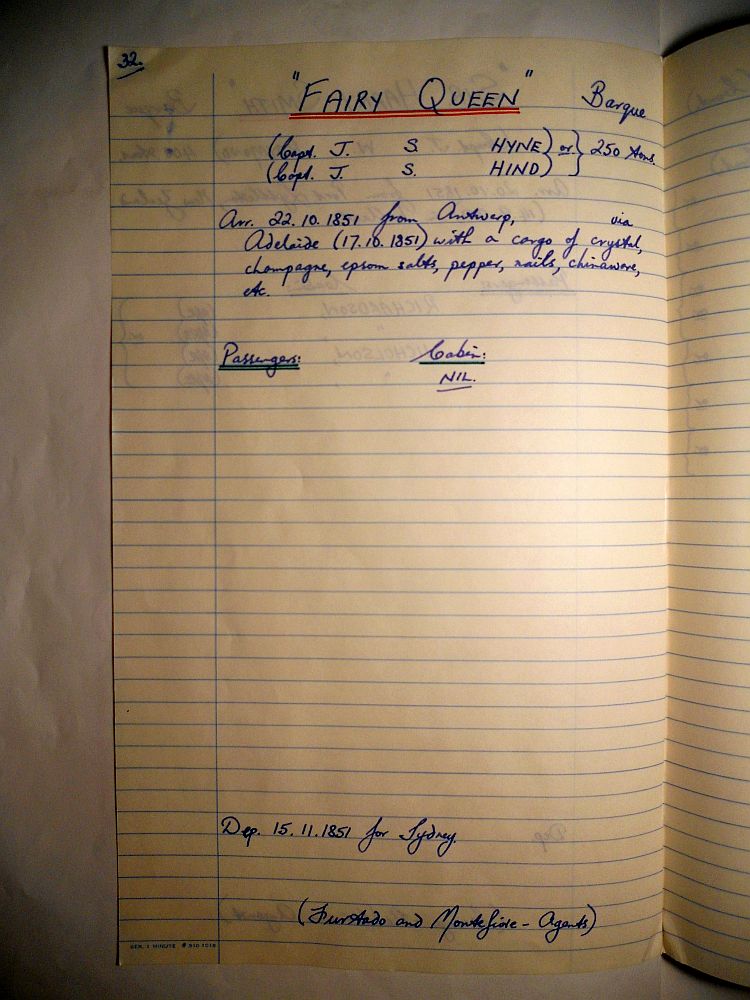 32.
"FAIRY QUEEN" Barque
(Capt. J. S. HYNE) or } 250 tons.
(Capt. J. S. HIND)
Arr. 22.10.1851 from Antwerp, via
Adelaide (17.10.1851) with a cargo of crystal,
champagne, epsom salts, pepper, nails, chinaware,
etc.
Passengers: Cabin:
NIL.
Dep. 15.11.1851 for Sydney.
(Furtado and Montefiore - Agents)
GEN. 1 MINUTE